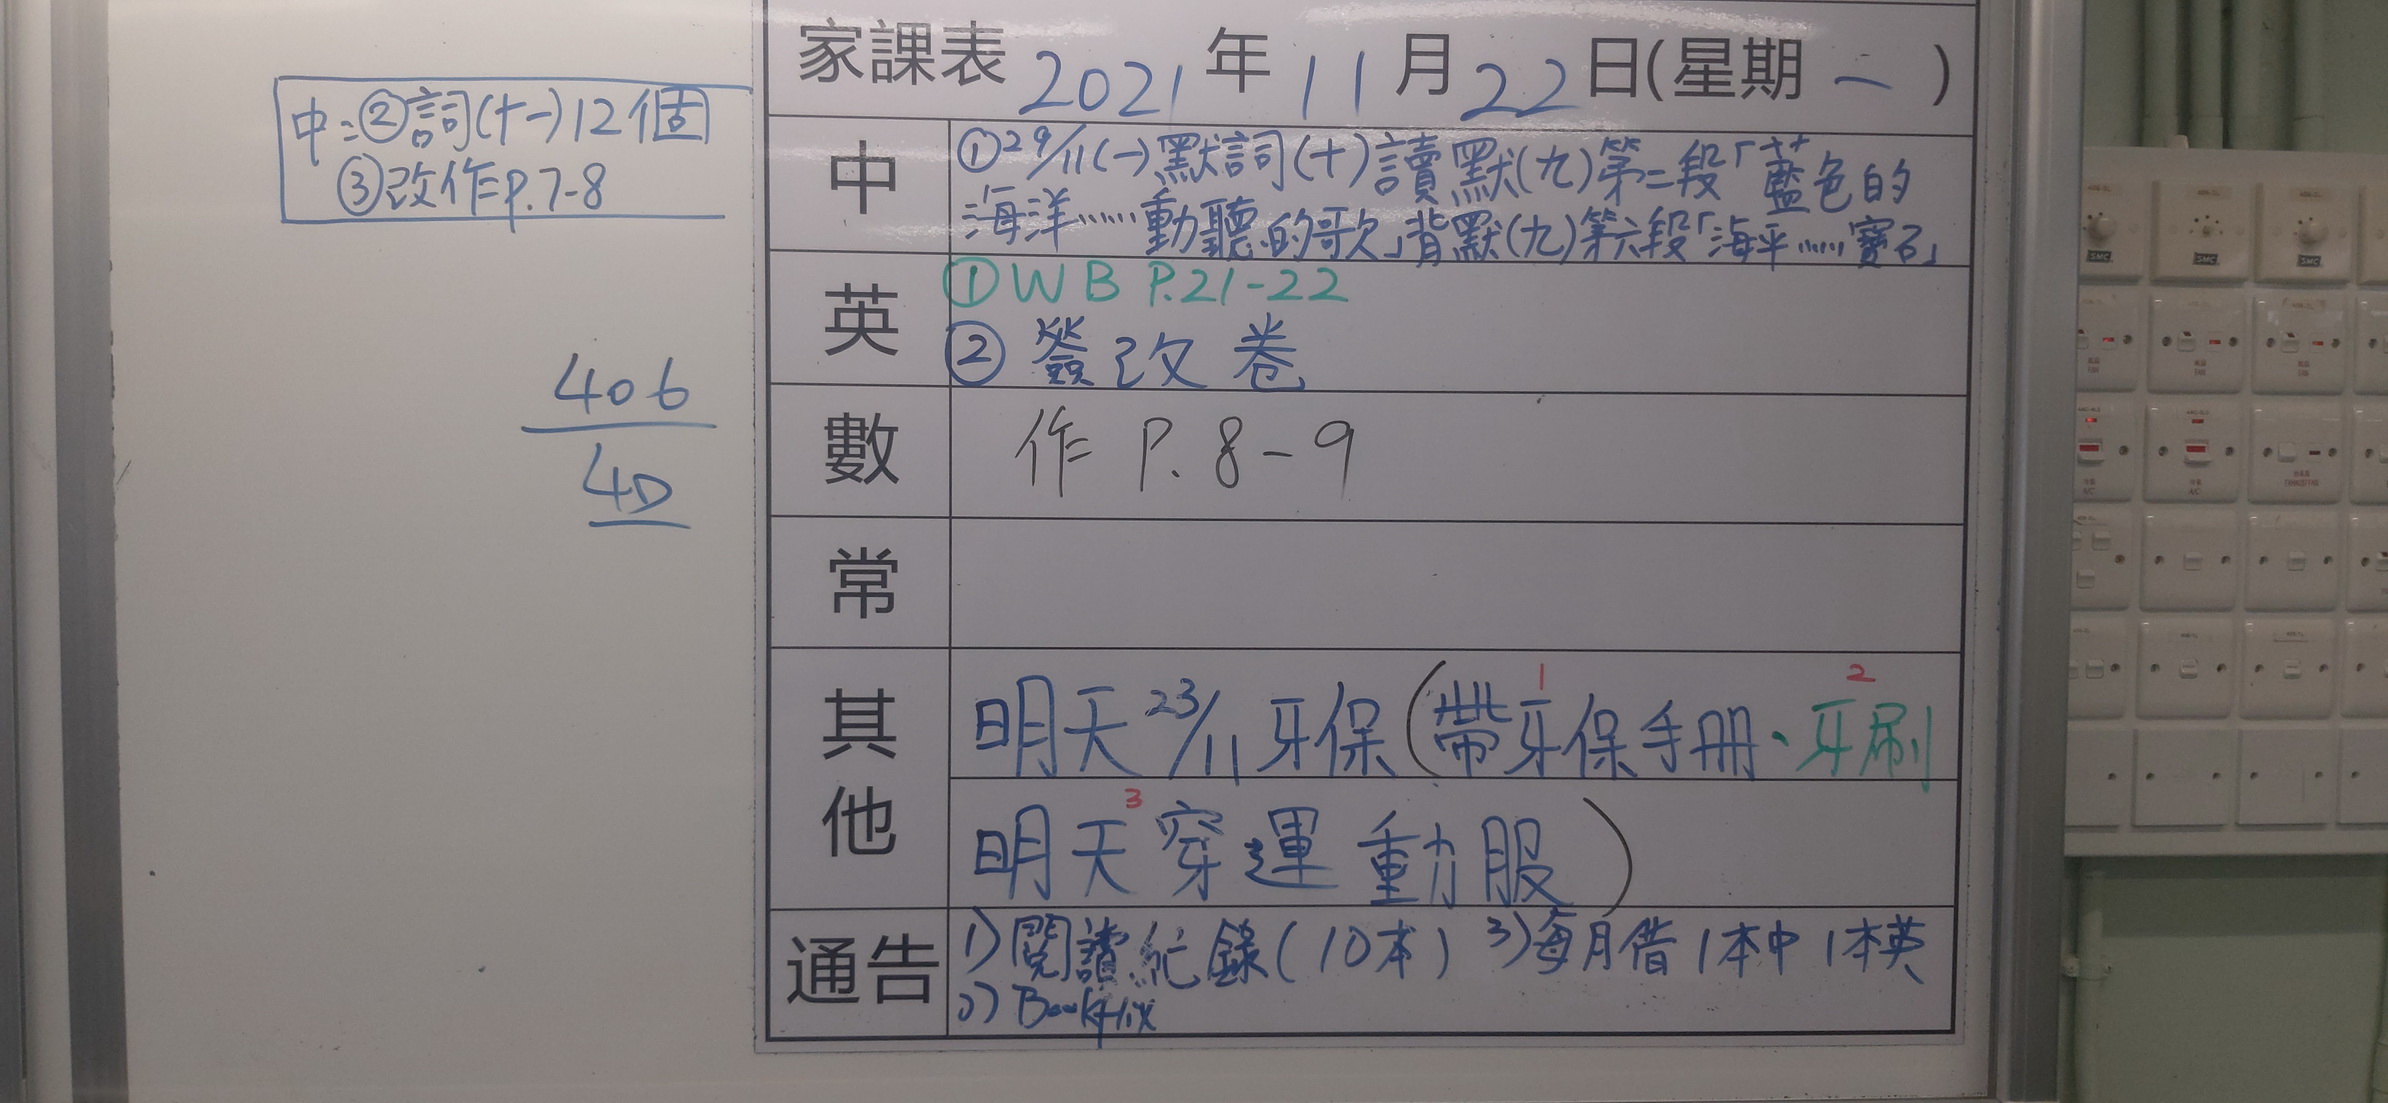 家課表 2021 年 11 月 22 日(星期 一 )
中:②詞(十一)12個
③改作P.7-8
中
①29/11(一)默詞(十)讀默(九)第二段「藍色的
海洋……動聽的歌」背默(九)第六段「海平……寶石」
英
①WB P.21-22
②簽改卷
數
作 P. 8-9
406
4D
常
其他
明天23/11牙保(帶牙保手冊、牙刷
1
2
明天穿運動服)
3
通告
1)閱讀紀錄(10本) 3)每月借1本中1本英
2) Bookflix
SMC
SMC
SMC
FAN
FAN
FAN
A/C
A/C